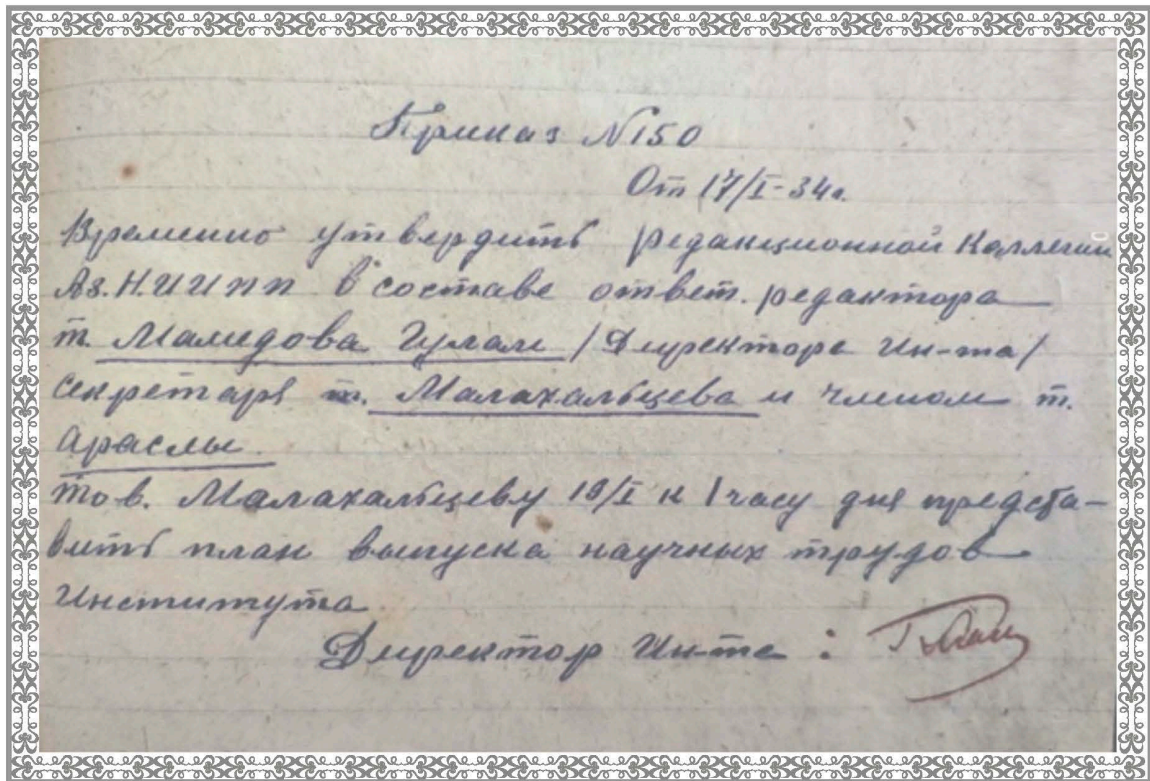 Приказ N150
От 17/I-34г.
Временно утвердить редакционной Коллегии
Аз.Н.ИИПП в составе ответ. редактора
т. Мамедова Гулам /Директора Ин-та/
секретаря т. Малахальцева и членом т.
Араслы.
Тов. Малахальцеву 19/I к 1 часу дня предста-
вить план выпуска научных трудов
Института
Директор Ин-та :